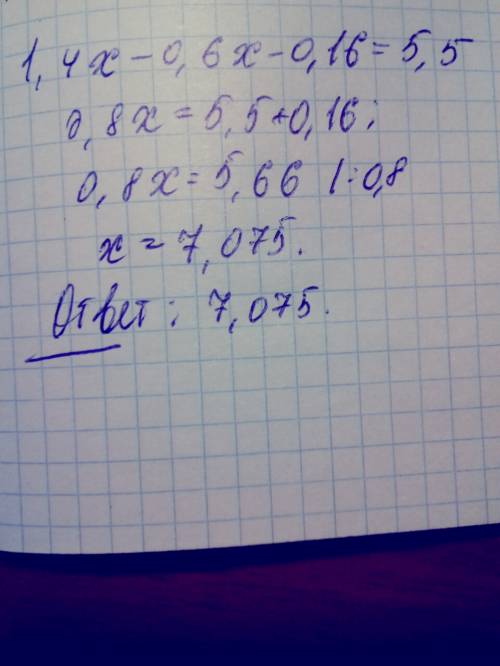 1,4x-0,6x-0,16=5,5
0,8x=5,5+0,16;
0,8x=5,66 |:0,8
x=7,075.
Ответ: 7,075.